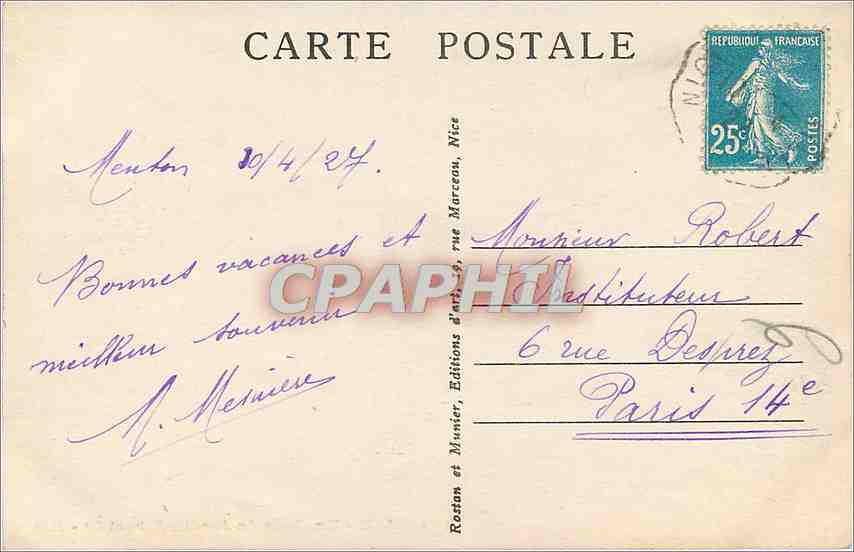 CARTE POSTALE
RÉPUBLIQUE FRANÇAISE
25c
POSTES
Menton 10/4/27.
Bonnes vacances et
meilleur souvenir
M. Mesnière
Rostan et Munier, Editions d'art, 19, rue Marceau, Nice
Monsieur Robert
Instituteur
6 rue Desprez
Paris 14e
CPAPHIL